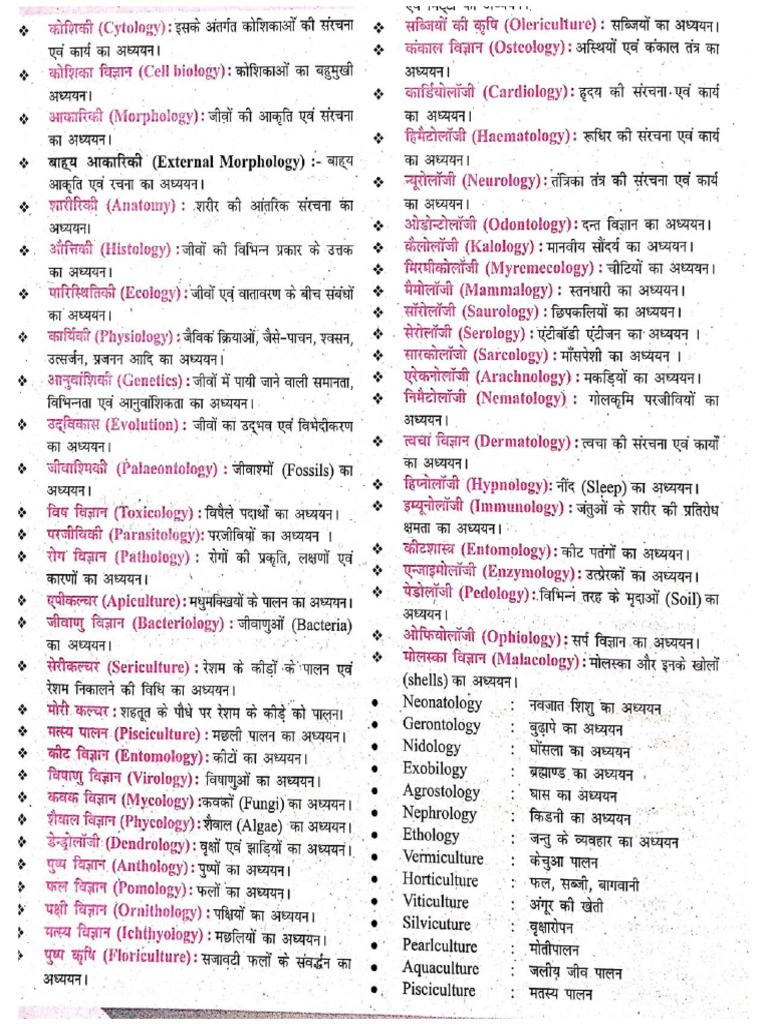 कोशिकी (Cytology): इसके अंतर्गत कोशिकाओं की संरचना
एवं कार्य का अध्ययन।
कोशिका विज्ञान (Cell biology): कोशिकाओं का बहुमुखी
अध्ययन।
आकारिकी (Morphology): जीवों की आकृति एवं संरचना
का अध्ययन।
बाह्य आकारिकी (External Morphology) :- बाह्य
आकृति एवं रचना का अध्ययन।
शारीरिकी (Anatomy) : शरीर की आंतरिक संरचना का
अध्ययन।
औत्तिकी (Histology): जीवों की विभिन्न प्रकार के उत्तक
का अध्ययन।
पारिस्थितिकी (Ecology): जीवों एवं वातावरण के बीच संबंधों
का अध्ययन।
कार्यिकी (Physiology): जैविक क्रियाओं, जैसे-पाचन, श्वसन,
उत्सर्जन, प्रजनन आदि का अध्ययन।
आनुवांशिकी (Genetics): जीवों में पायी जाने वाली समानता,
विभिन्नता एवं आनुवांशिकता का अध्ययन।
उद्विकास (Evolution): जीवों का उद्भव एवं विभेदीकरण
का अध्ययन।
जीवाश्मिकी (Palaeontology) : जीवाश्मों (Fossils) का
अध्ययन।
विष विज्ञान (Toxicology) : विषैले पदार्थों का अध्ययन।
परजीविकी (Parasitology): परजीवियों का अध्ययन ।
रोग विज्ञान (Pathology) : रोगों की प्रकृति, लक्षणों एवं
कारणों का अध्ययन।
एपीकल्चर (Apiculture): मधुमक्खियों के पालन का अध्ययन।
जीवाणु विज्ञान (Bacteriology) : जीवाणुओं (Bacteria)
का अध्ययन।
सेरीकल्चर (Sericulture) : रेशम के कीड़ों के पालन एवं
रेशम निकालने की विधि का अध्ययन।
मोरी कल्चर : शहतूत के पौधे पर रेशम के कीड़े को पालना।
मत्स्य पालन (Pisciculture) : मछली पालन का अध्ययन।
कीट विज्ञान (Entomology) : कीटों का अध्ययन।
विषाणु विज्ञान (Virology) : विषाणुओं का अध्ययन।
कवक विज्ञान (Mycology) :कवकों (Fungi) का अध्ययन।
शैवाल विज्ञान (Phycology): शैवाल (Algae) का अध्ययन।
डेन्ड्रोलॉजी (Dendrology): वृक्षों एवं झाड़ियों का अध्ययन।
पुष्प विज्ञान (Anthology) : पुष्पों का अध्ययन।
फल विज्ञान (Pomology) : फलों का अध्ययन।
पक्षी विज्ञान (Ornithology) : पक्षियों का अध्ययन।
मत्स्य विज्ञान (Ichthyology) : मछलियों का अध्ययन।
पुष्प कृषि (Floriculture): सजावटी फलों के संवर्द्धन का
अध्ययन।
सब्जियों की कृषि (Olericulture) : सब्जियों का अध्ययन।
कंकाल विज्ञान (Osteology): अस्थियों एवं कंकाल तंत्र का
अध्ययन।
कार्डियोलॉजी (Cardiology): हृदय की संरचना एवं कार्य
का अध्ययन।
हिमैटोलॉजी (Haematology) : रूधिर की संरचना एवं कार्य
का अध्ययन।
न्यूरोलॉजी (Neurology): तंत्रिका तंत्र की संरचना एवं कार्य
का अध्ययन।
ओडोन्टोलॉजी (Odontology): दन्त विज्ञान का अध्ययन।
कैलोलॉजी (Kalology): मानवीय सौंदर्य का अध्ययन।
मिरमीकोलॉजी (Myremecology) : चीटियों का अध्ययन।
मैमोलॉजी (Mammalogy) : स्तनधारी का अध्ययन।
सॉरोलॉजी (Saurology) : छिपकलियों का अध्ययन।
सेरोलॉजी (Serology) : एंटीबॉडी एंटीजन का अध्ययन ।
सारकोलॉजी (Sarcology) : माँसपेशी का अध्ययन ।
एरेकनोलॉजी (Arachnology) : मकड़ियों का अध्ययन।
निमैटोलॉजी (Nematology) : गोलकृमि परजीवियों का
अध्ययन।
त्वचा विज्ञान (Dermatology) : त्वचा की संरचना एवं कार्यों
का अध्ययन।
हिप्नोलॉजी (Hypnology): नींद (Sleep) का अध्ययन।
इम्यूनोलॉजी (Immunology) : जंतुओं के शरीर की प्रतिरोध
क्षमता का अध्ययन।
कीटशास्त्र (Entomology) : कीट पतंगों का अध्ययन।
एन्जाइमोलॉजी (Enzymology) : उत्प्रेरकों का अध्ययन।
पेडोलॉजी (Pedology) : विभिन्न तरह के मृदाओं (Soil) का
अध्ययन।
ओफियोलॉजी (Ophiology) : सर्प विज्ञान का अध्ययन।
मोलस्का विज्ञान (Malacology) : मोलस्का और इनके खोलों
(shells) का अध्ययन।
Neonatology : नवजात शिशु का अध्ययन
Gerontology : बुढ़ापे का अध्ययन
Nidology : घोंसला का अध्ययन
Exobilogy : ब्रह्माण्ड का अध्ययन
Agrostology : घास का अध्ययन
Nephrology : किडनी का अध्ययन
Ethology : जन्तु के व्यवहार का अध्ययन
Vermiculture : केंचुआ पालन
Horticulture : फल, सब्जी, बागवानी
Viticulture : अंगूर की खेती
Silvicuture : वृक्षारोपन
Pearlculture : मोतीपालन
Aquaculture : जलीय जीव पालन
Pisciculture : मतस्य पालन